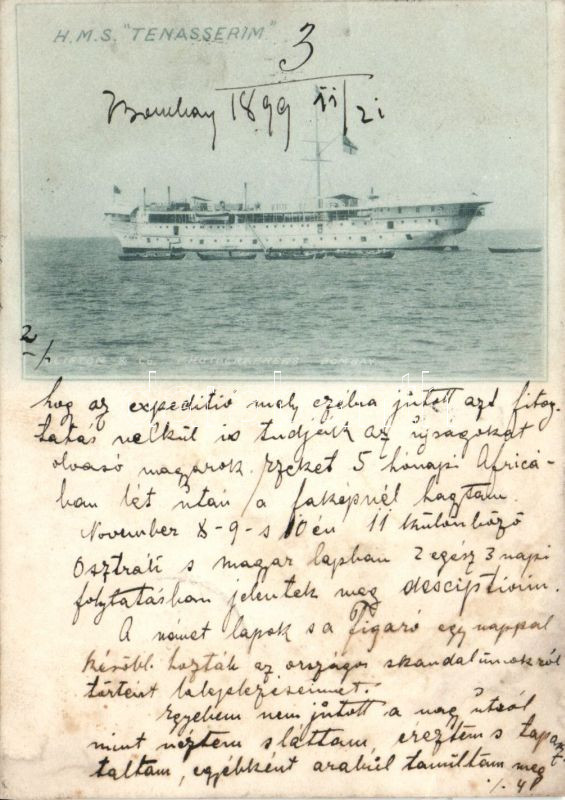 H.M.S. "TENASSERIM"
3
Bombay 1899 11/21
2/1
CLIFTON & Co. PHOTOGRAPHERS BOMBAY
hog az expeditió mely czélra jutott azt fitog-
tatás nélkül is tudják az újságokat
olvasó magarok. Ezeket 5 hónapi Africá-
ban lét után a faképnél hagtam.
November 8-9-s 10én 11 különböző
Osztrák s magar lapban 2 egész 3 napi
folytatásban jelentek meg
A német lapok s a Figaró egy nappal
később hozták az országos skandalumokról
történt leleplezéseimet.
Egyebem nem jutott a nag útról
mint néztem s láttam, éreztem s tapasz
taltam, egyébként arabúl tanultam meg